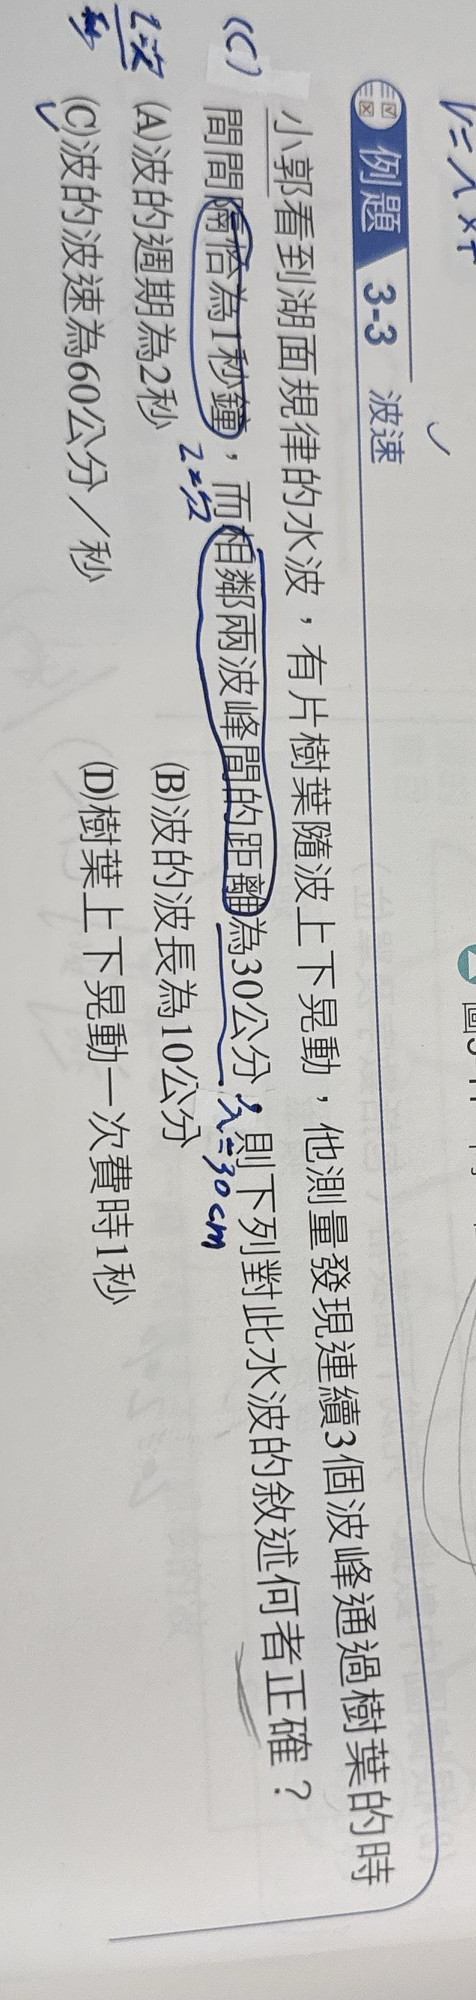 V=λ×f
例題 3-3 波速
小郭看到湖面規律的水波，有片樹葉隨波上下晃動，他測量發現連續3個波峰通過樹葉的時
(C)
間間隔恰為1秒鐘，而相鄰兩波峰間的距離為30公分，則下列對此水波的敘述何者正確？
λ=30cm
(A)波的週期為2秒
(B)波的波長為10公分
2次
(C)波的波速為60公分／秒
(D)樹葉上下晃動一次費時1秒